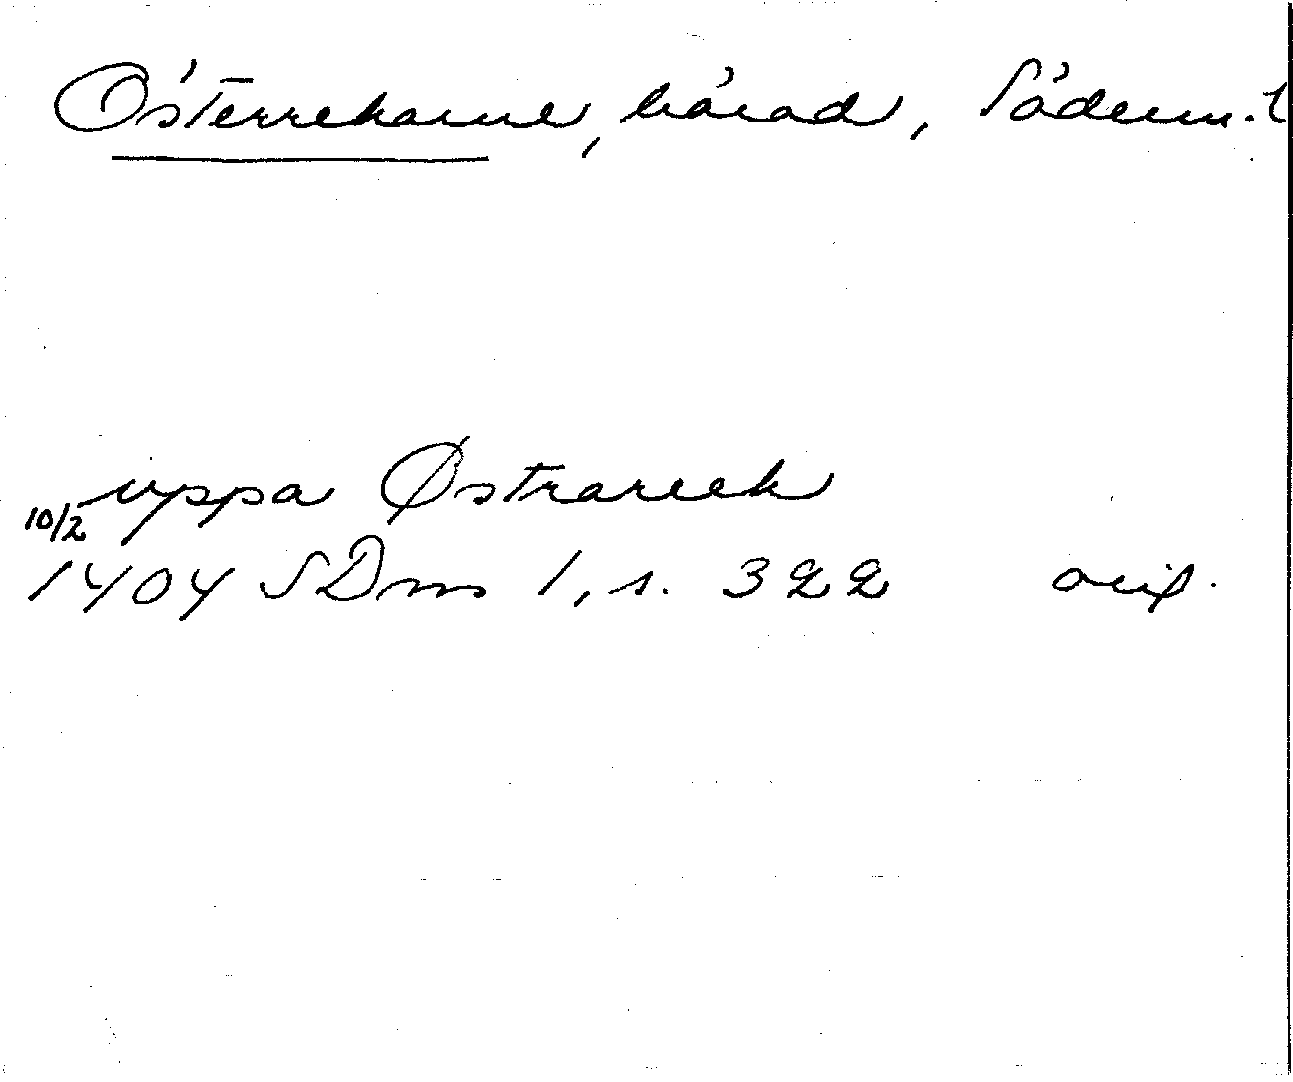 Österrekarne, härad, Söderm. l
uppa Østrareek
10/2
1404 SDns 1, s. 322 orig.